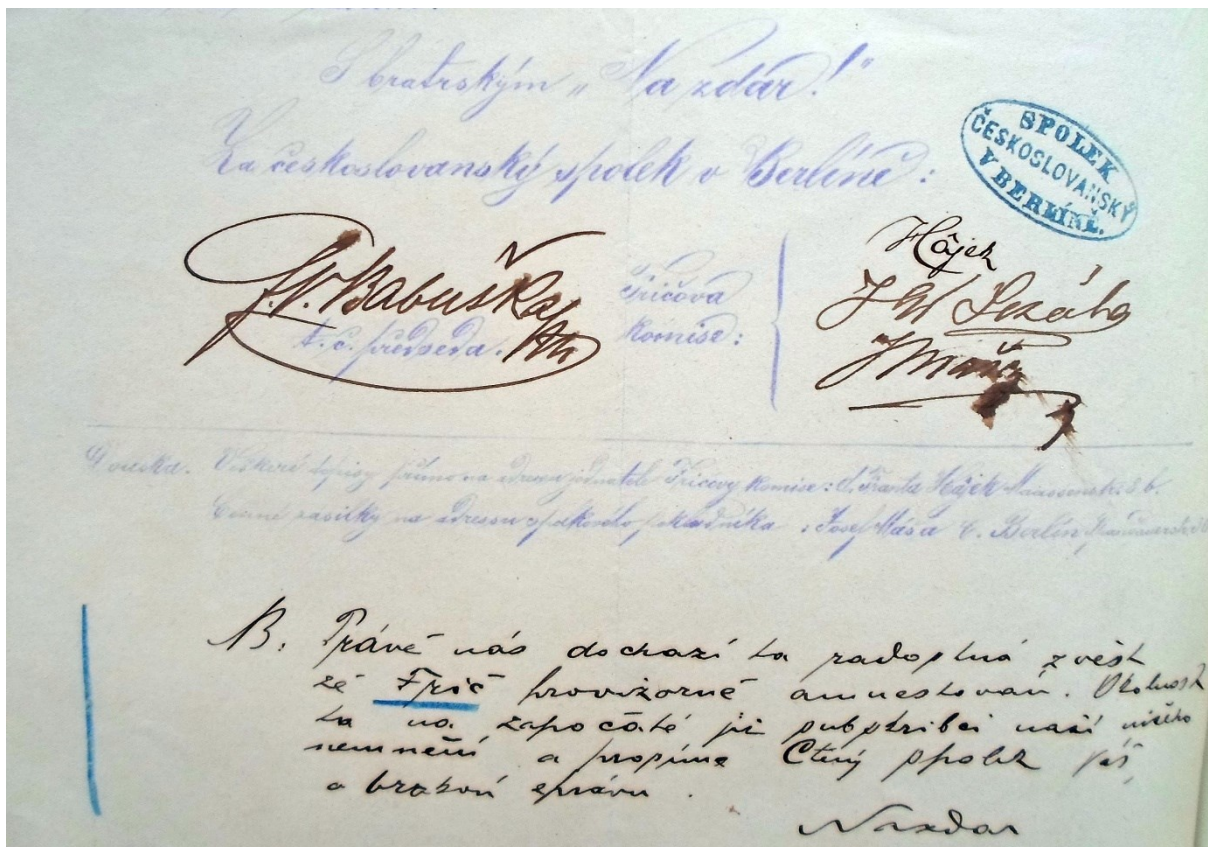 S bratrským „Na zdar!"
Za českoslovanský spolek v Berlíně:
SPOLEK
ČESKOSLOVANSKÝ
V BERLÍNĚ.
Babuška
t. č. předseda.
Fričova
komise:
Hájek
Veškeré dopisy přímo na adresu jednatele Fričovy komise: Franta Hájek
Cenné zásilky na adressu spolkového pokladníka: Josef Máša C. Berlín
NB. Právě nás dochazí ta radostná zvěst
že Frič provizorně amnestován. Okolnost
ta na započaté již subskribci naší ničeho
nemnění a prosíme Ctěný spolek
o brzkou zprávu.
Nazdar